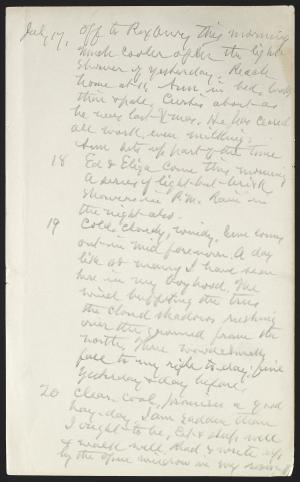 July, 17, Off to Roxbury this morning
much cooler after the light
shower of yesterday. Reach
home at 11, Ann in bed, looks
thin & pale, Curtis about as
he was last X-mas. He has ceased
all work, even milking.
Ann sits up part of the time.
18 Ed & Eliza came this morning
A series of light but brisk
showers in P.M. Rain in
the night also.
19 Cold, cloudy, windy. Sun comes
out in mid forenoon. A day
like as many I have seen
here in my boyhood, the
wind buffeting the trees
the cloud shadows rushing
over the ground from the
north, three woodchucks
fall to my rifle to-day, five
yesterday & day before.
20 Clear, cool, promises a good
hay-day. I am sadder than
I ought to be, Eat & sleep well
& walk well. Read & write up,
by the open window in my